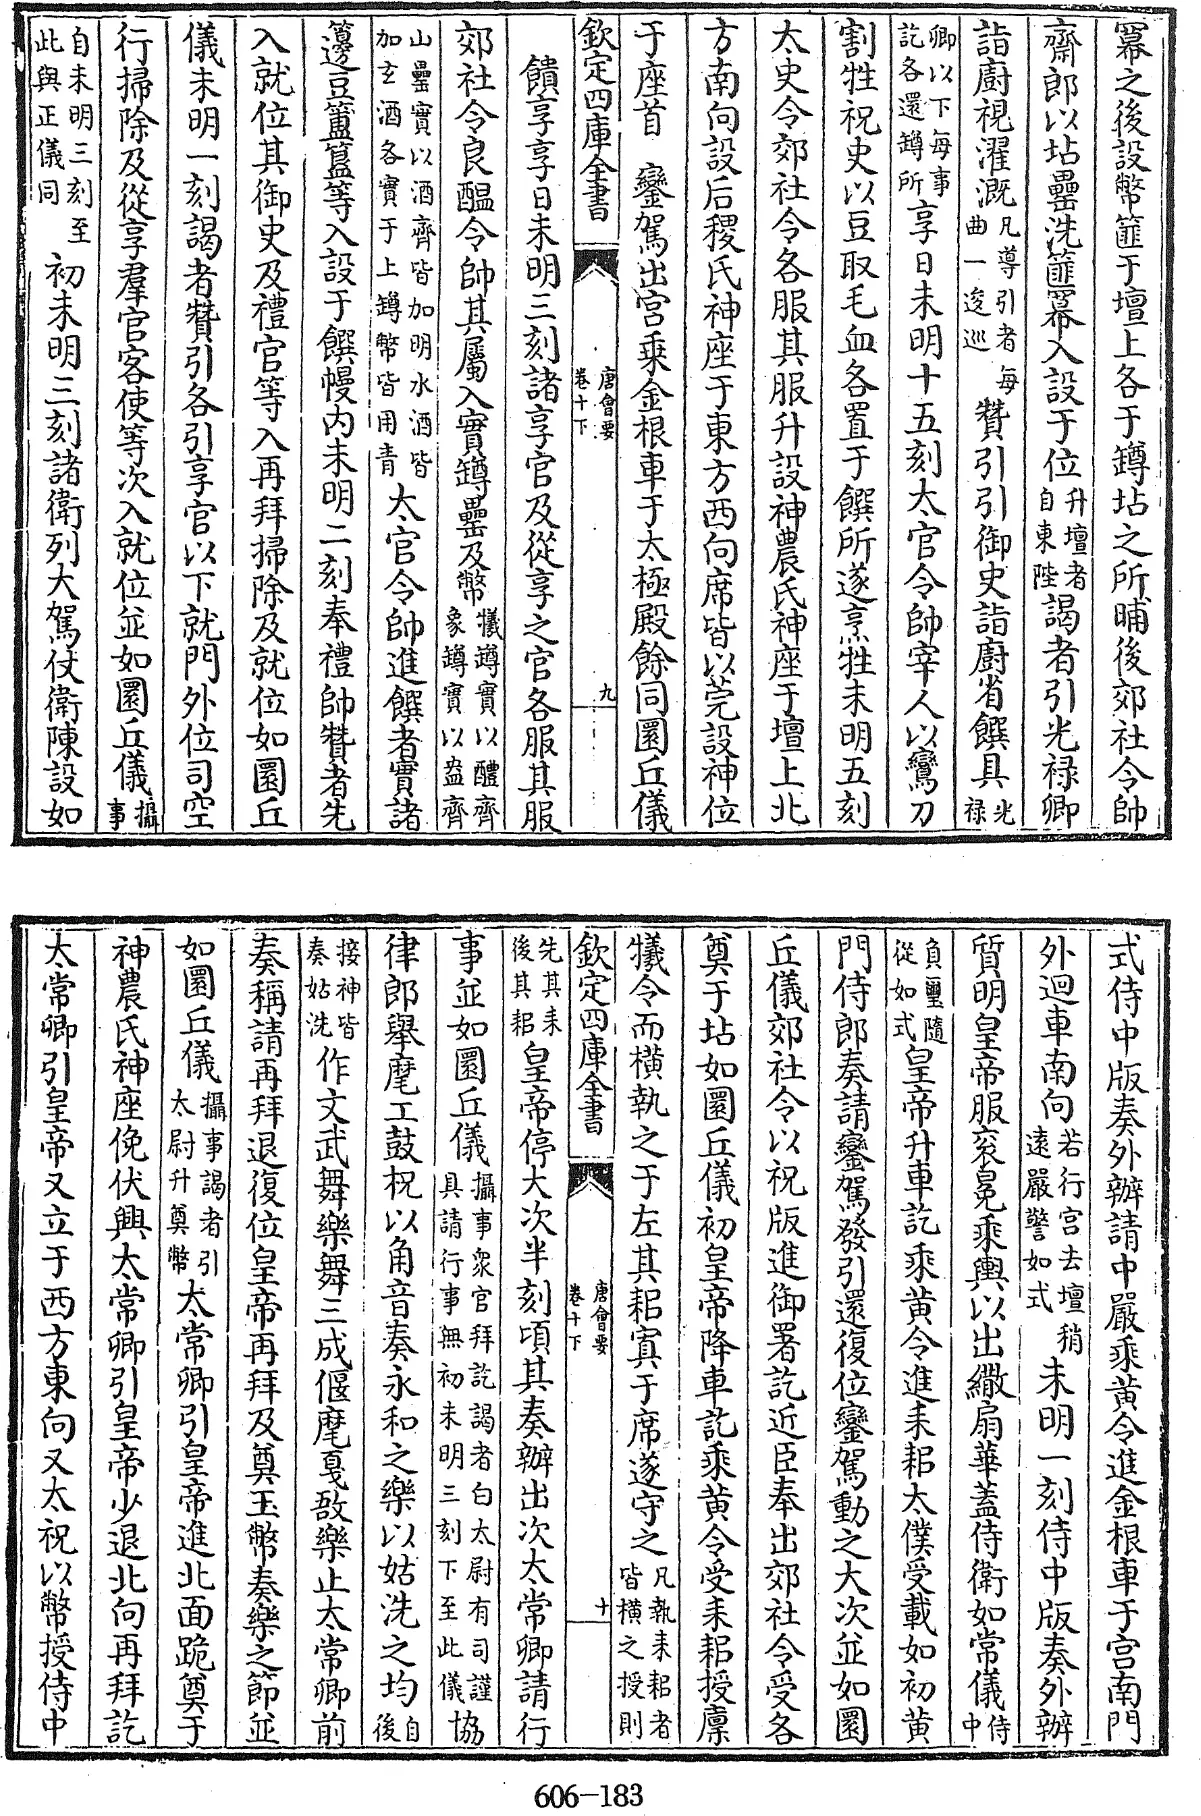 冪之後設幣篚于壇上各于罇坫之所晡後郊社令帥
齋郎以坫罍洗篚冪入設于位升壇者自東陛謁者引光禄卿
詣廚視濯溉凡導引者每曲一逡巡贊引引御史詣廚省饌具光禄
卿以下每事訖各還罇所享日未明十五刻太官令帥宰人以鸞刀
割牲祝史以豆取毛血各置于饌所遂烹牲未明五刻
太史令郊社令各服其服升設神農氏神座于壇上北
方南向設后稷氏神座于東方西向席皆以莞設神位
于座首　鑾駕出宮乘金根車于太極殿餘同圜丘儀
欽定四庫全書　唐會要卷十下　九
饋享享日未明三刻諸享官及從享之官各服其服
郊社令良醞令帥其屬入實罇罍及幣犧罇實以醴齊象罇實以盎齊
山罍實以酒齊皆加明水酒皆加玄酒各實于上罇幣皆用青太官令帥進饌者實諸
籩豆簠簋等入設于饌幔内未明二刻奉禮帥贊者先
入就位其御史及禮官等入再拜掃除及就位如圜丘
儀未明一刻謁者贊引各引享官以下就門外位司空
行掃除及從享羣官客使等次入就位並如圜丘儀攝事
自未明三刻至此與正儀同初未明三刻諸衛列大駕仗衛陳設如
式侍中版奏外辦請中嚴乘黄令進金根車于宫南門
外迴車南向若行宫去壇稍遠嚴警如式未明一刻侍中版奏外辦
質明皇帝服衮冕乘輿以出繖扇華蓋侍衛如常儀侍中
負璽隨從如式皇帝升車訖乘黄令進耒耜太僕受載如初黄
門侍郎奏請鑾駕發引還復位鑾駕動之大次並如圜
丘儀郊社令以祝版進御署訖近臣奉出郊社令受各
奠于坫如圜丘儀初皇帝降車訖乘黄令受耒耜授廪
犧令而横執之于左其耜寘于席遂守之凡執耒耜者皆横之授則
先其耒後其耜皇帝停大次半刻頃其奏辦出次太常卿請行
欽定四庫全書　唐會要卷十下　十
事並如圜丘儀攝事衆官拜訖謁者白太尉有司謹具請行事無初未明三刻下至此儀協
律郎舉麾工鼓柷以角音奏永和之樂以姑洗之均自後
接神皆奏姑洗作文武舞樂舞三成偃麾戛敔樂止太常卿前
奏稱請再拜退復位皇帝再拜及奠玉幣奏樂之節並
如圜丘儀攝事謁者引太尉升奠幣太常卿引皇帝進北面跪奠于
神農氏神座俛伏興太常卿引皇帝少退北向再拜訖
太常卿引皇帝又立于西方東向又太祝以幣授侍中
606-183